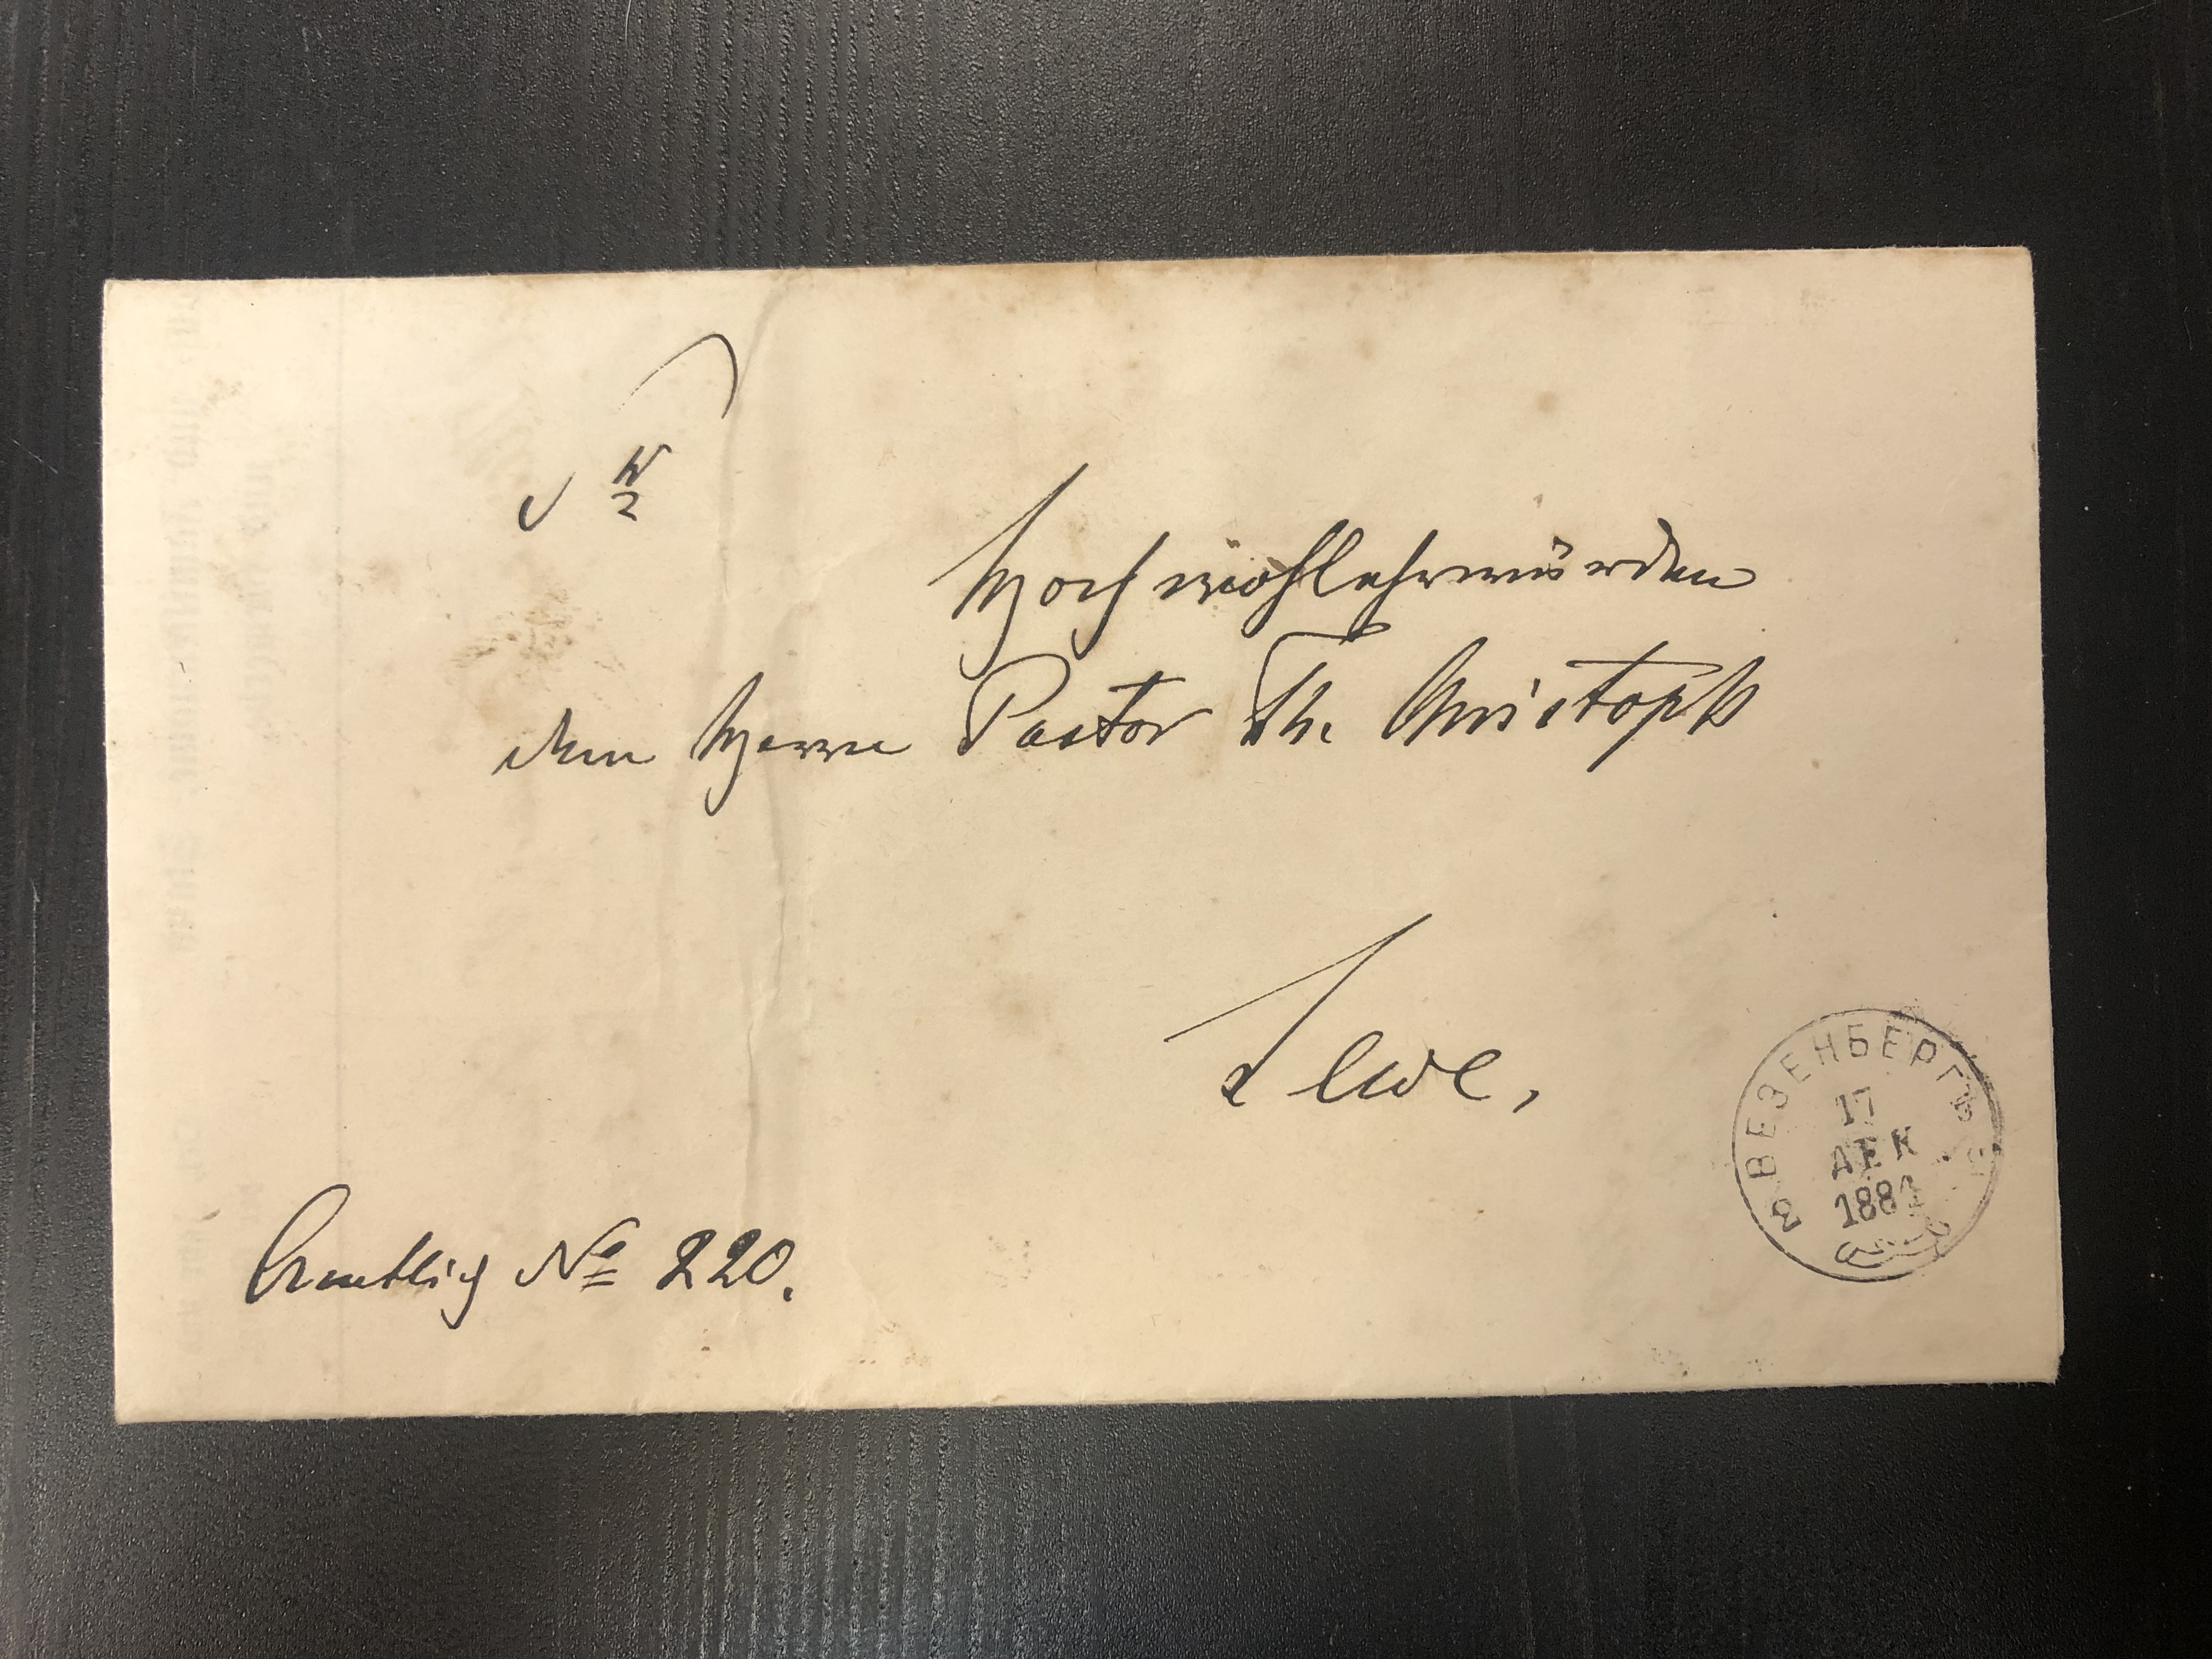 Hochwohlehrwürden
dem Herrn Pastor Th. Christoph
Jewe,
Amtlich № 220.
ВЕЗЕНБЕРГЪ
17
ДЕК
1881